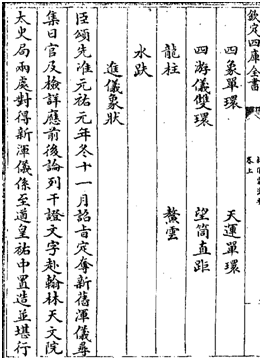 欽定四庫全書
卷上
四象單環
天運單環
四游儀雙環
望筒直距
龍柱
鰲雲
水趺
進儀象狀
臣頌先准元祐元年冬十一月詔旨定奪新舊渾儀尋
集日官及檢詳應前後論列干證文字赴翰林天文院
太史局兩處對得新渾儀係至道皇祐中置造並堪行